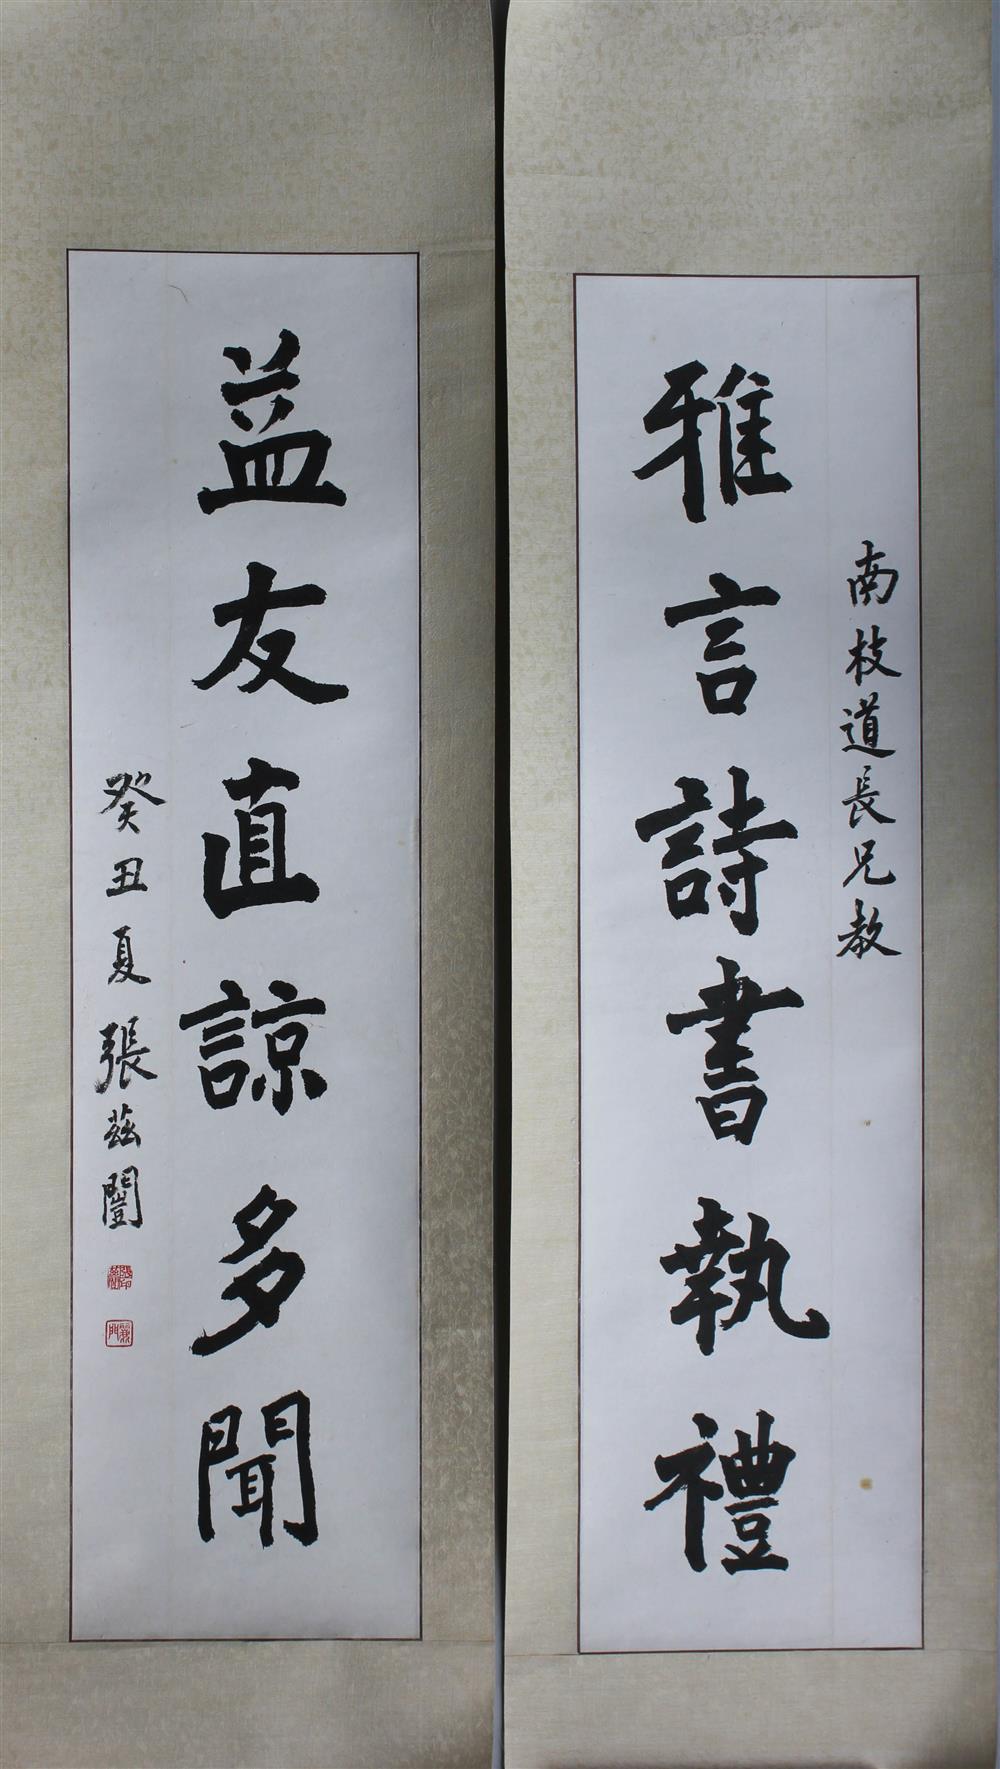 南枝道長兄教
雅言詩書執禮
益友直諒多聞
癸丑夏 張茲闓